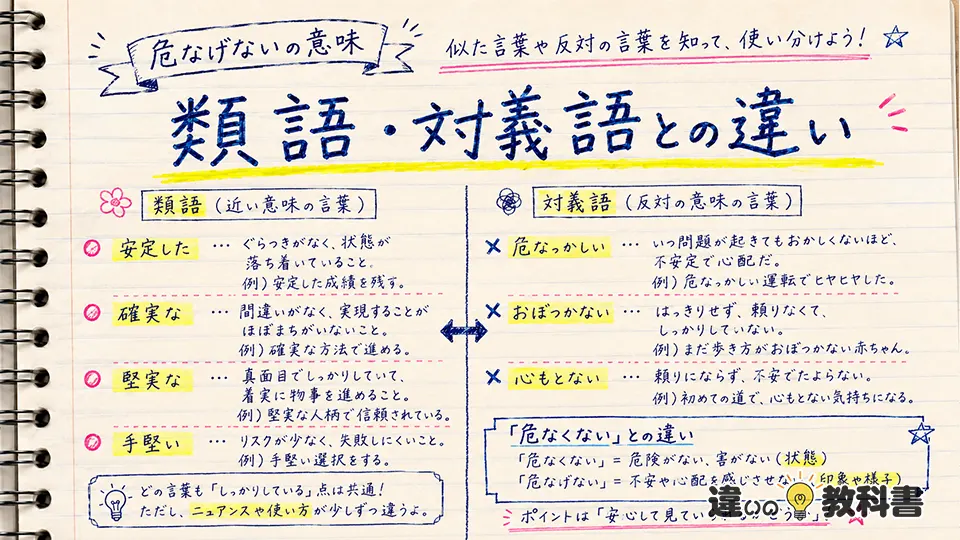 危なげないの意味
似た言葉や反対の言葉を知って、使い分けよう!
類語・対義語との違い
類語(近い意味の言葉)
安定した … ぐらつきがなく、状態が
落ち着いていること。
例)安定した成績を残す。
確実な … 間違いがなく、実現することが
ほぼまちがいないこと。
例)確実な方法で進める。
堅実な … 真面目でしっかりしていて、
着実に物事を進めること。
例)堅実な人柄で信頼されている。
手堅い … リスクが少なく、失敗しにくいこと。
例)手堅い選択をする。
どの言葉も「しっかりしている」点は共通!
ただし、ニュアンスや使い方が少しずつ違うよ。
対義語(反対の意味の言葉)
危なっかしい … いつ問題が起きてもおかしくないほど、
不安定で心配だ。
例)危なっかしい運転でヒヤヒヤした。
おぼつかない … はっきりせず、頼りなくて、
しっかりしていない。
例)まだ歩き方がおぼつかない赤ちゃん。
心もとない … 頼りにならず、不安でたよらない。
例)初めての道で、心もとない気持ちになる。
「危なくない」との違い
「危なくない」=危険がない、害がない(状態)
「危なげない」=不安や心配を感じさせない(印象や様子)
ポイントは「安心して見てい
違いの教科書